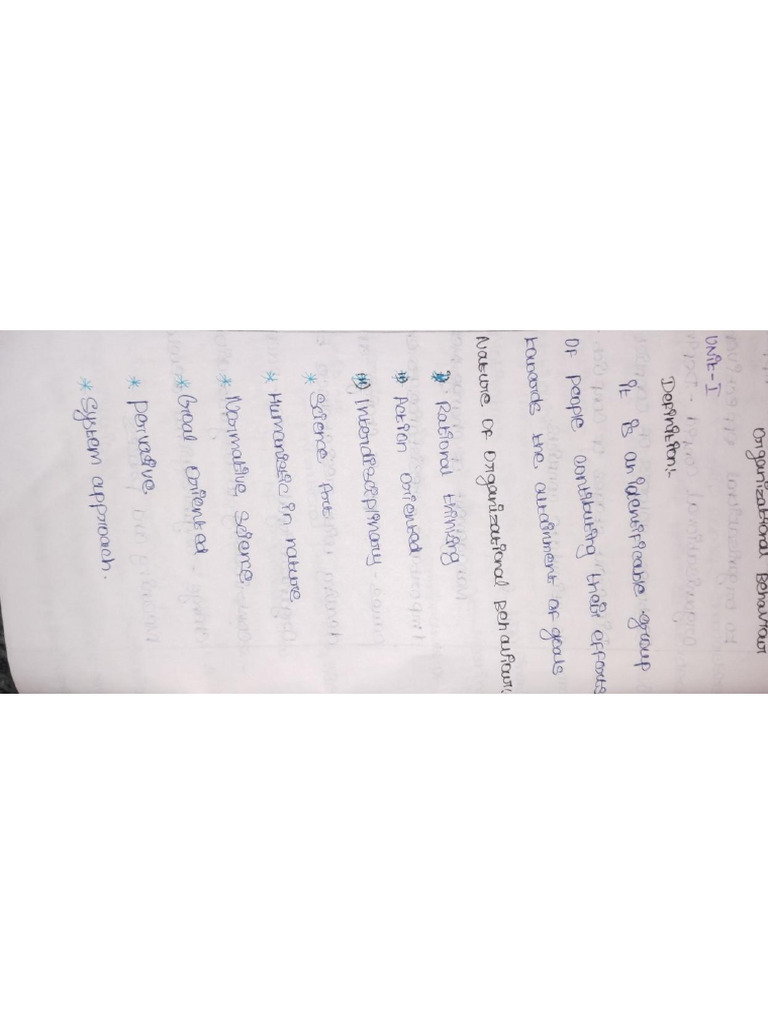 Organizational Behaviour
UNit-I
Definition:-
It is an identificable group
of people contributing their efforts
towards the autainment of goals
Nature of Organizational Behaviour:
* Rational thinking
* Action oriented
* Interdisciplinary
* Science Arts
* Humanistic in nature
* Normative Science
* Goal oriented
* pervative
* System approach.